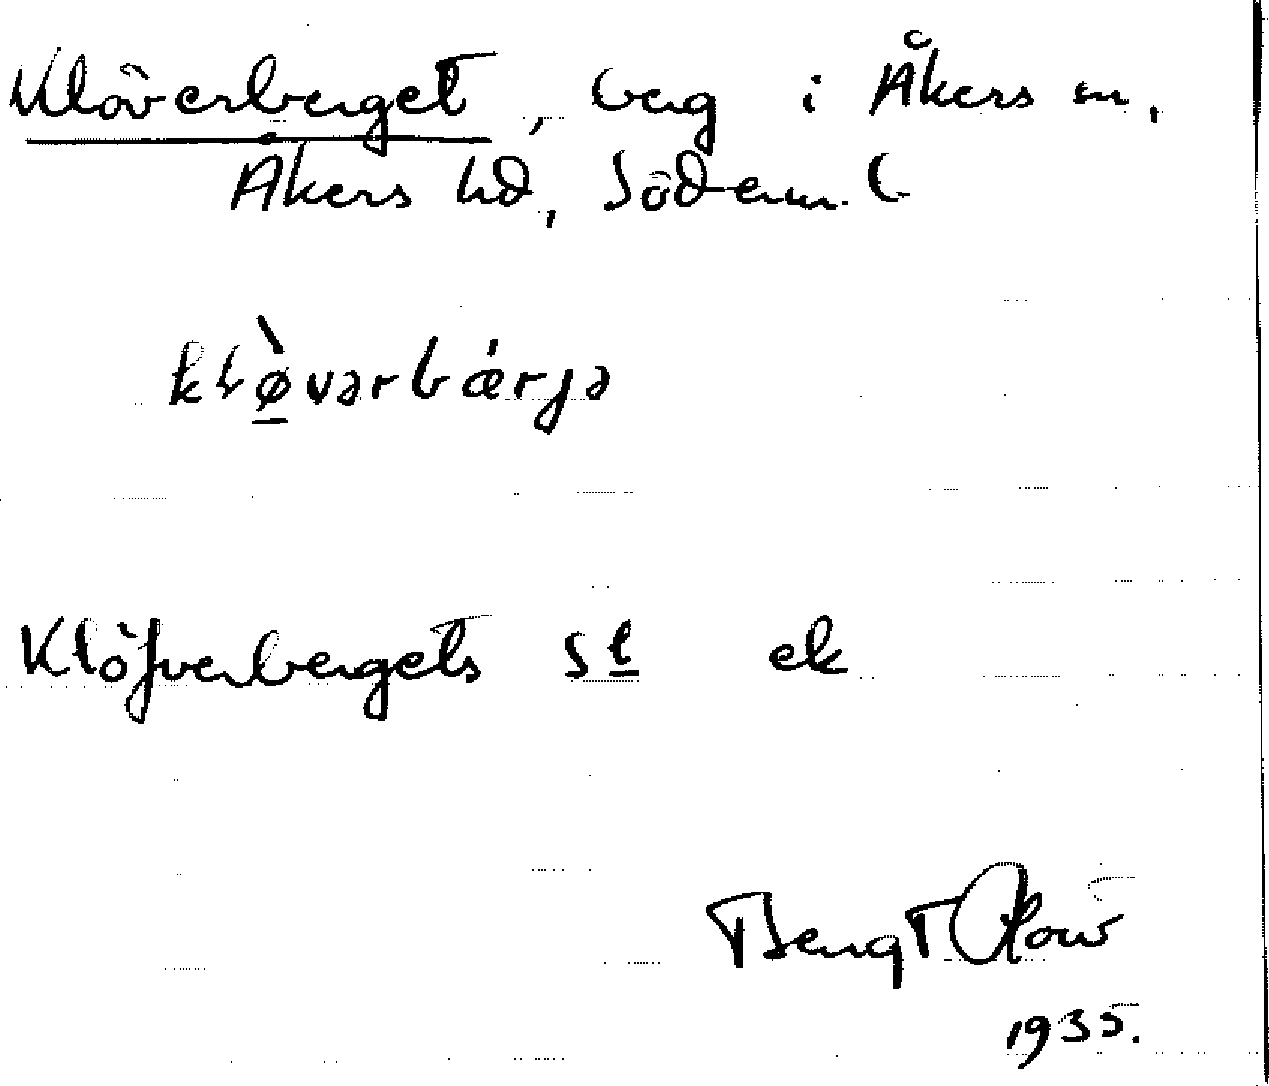 Klöverberget, berg i Åkers sn,
Åkers hd, Söderm. l.
kløvərbærjə
Klöfverbergets st ek
Bengt
1935.